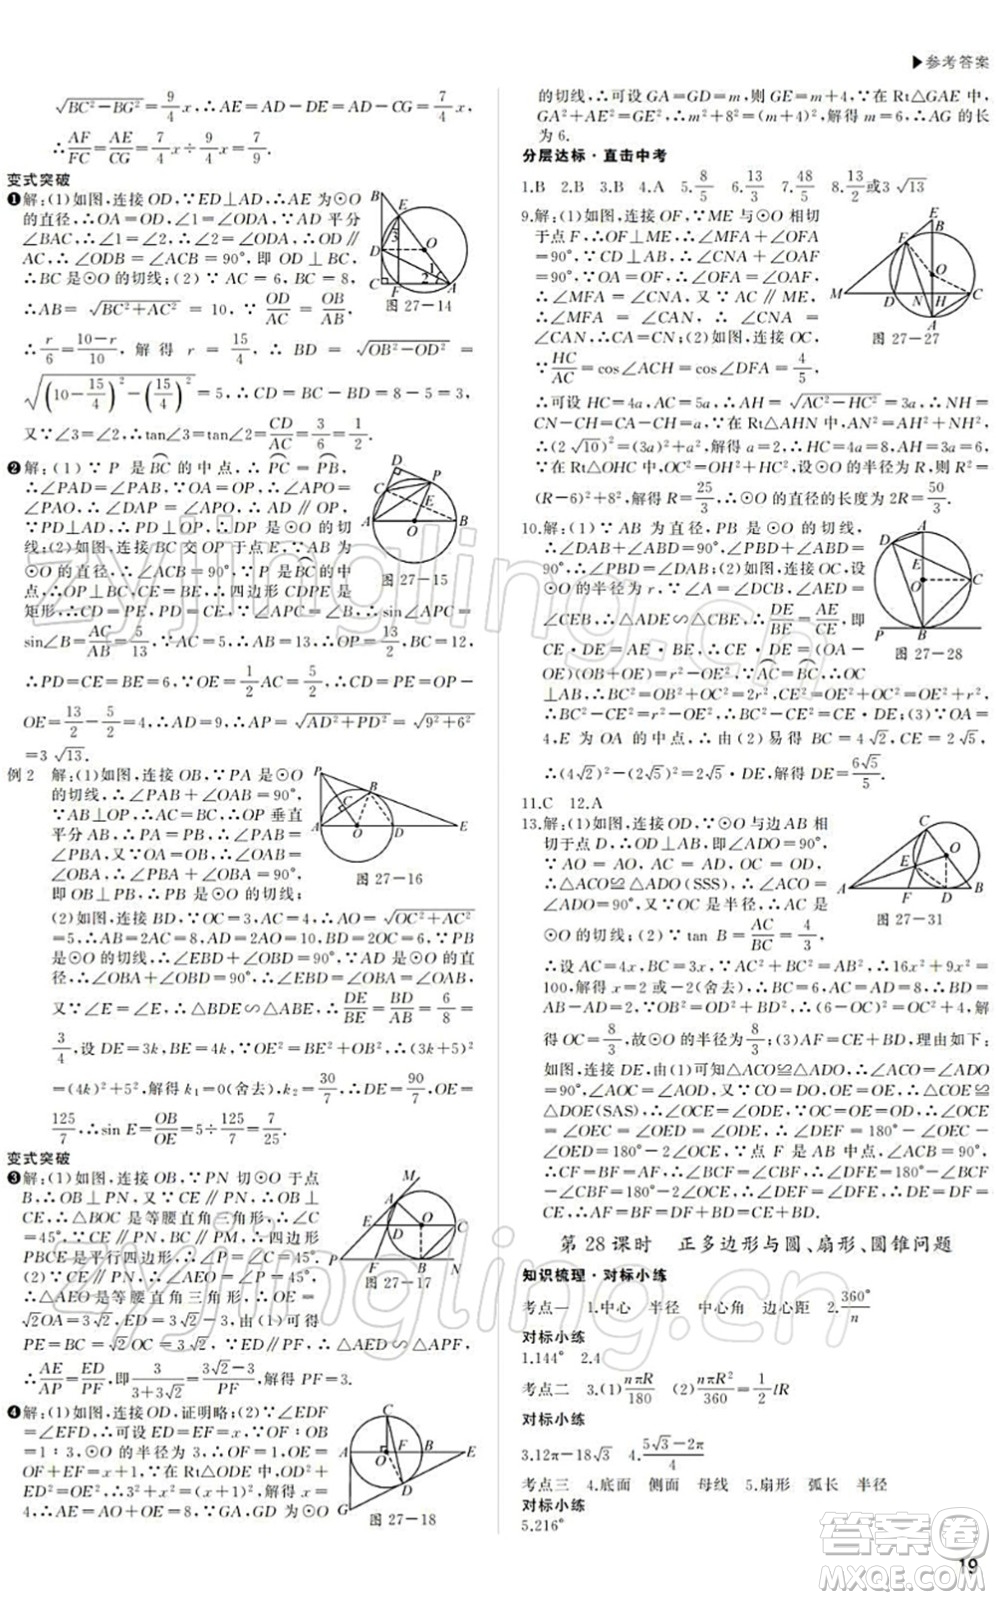 ▶参考答案
√(BC²－BG²)＝9/4x,∴AE＝AD－DE＝AD－CG＝7/4x,
∴AF/FC＝AE/CG＝7/4x÷9/4x＝7/9.
变式突破
❶解:(1)如图,连接OD,∵ED⊥AD,∴AE为⊙O
的直径,∴OA＝OD,∠1＝∠ODA,∵AD平分
∠BAC,∴∠1＝∠2,∴∠2＝∠ODA,∴OD∥
AC,∴∠ODB＝∠ACB＝90°,即OD⊥BC,
∴BC是⊙O的切线;(2)∵AC＝6,BC＝8,
∴AB＝√(BC²＋AC²)＝10,∵OD/AC＝OB/AB,
图27－14
∴r/6＝(10－r)/10,解得r＝15/4,∴BD＝√(OB²－OD²)＝
√((10－15/4)²－(15/4)²)＝5,∴CD＝BC－BD＝8－5＝3,
又∵∠3＝∠2,∴tan∠3＝tan∠2＝CD/AC＝3/6＝1/2.
❷解:(1)∵P是BC的中点,∴PC＝PB,
∴∠PAD＝∠PAB,∵OA＝OP,∴∠APO＝
∠PAO,∴∠DAP＝∠APO,∴AD∥OP,
∵PD⊥AD,∴PD⊥OP,∴DP是⊙O的切
线;(2)如图,连接BC交OP于点E,∵AB为
⊙O的直径,∴∠ACB＝90°,∵P是BC的中
图27－15
点,∴OP⊥BC,CE＝BE,∴四边形CDPE是
矩形,∴CD＝PE,PD＝CE,∵sin∠APC＝
sin∠B＝AC/AB＝5/13,∵AC＝5,∴AB＝13,∴OP＝13/2,BC＝12,
∴PD＝CE＝BE＝6,∵OE＝1/2AC＝5/2,∴CD＝PE＝OP－
OE＝13/2－5/2＝4,∴AD＝9,∴AP＝√(AD²＋PD²)＝√(9²＋6²)
＝3√13.
例2 解:(1)如图,连接OB,∵PA是⊙O
的切线,∴∠PAB＋∠OAB＝90°,
∵AB⊥OP,∴AC＝BC,∴OP垂直
平分AB,∴PA＝PB,∴∠PBA＝
∠PAB,又∵OA＝OB,∴∠OAB＝
∠OBA,∴∠PBA＋∠OBA＝90°,
图27－16
即OB⊥PB,∴PB是⊙O的切线;
(2)如图,连接BD,∵OC＝3,AC＝4,∴AO＝√(OC²＋AC²)
＝5,∴AB＝2AC＝8,AD＝2AO＝10,BD＝2OC＝6,∵PB
是⊙O的切线,∴∠EBD＋∠OBD＝90°,∵AD是⊙O的直
径,∴∠OBA＋∠OBD＝90°,∴∠EBD＝∠OBA＝∠OAB,
又∵∠E＝∠E,∴△BDE∽△ABE,∴DE/BE＝BD/AB＝6/8＝
3/4,设DE＝3k,BE＝4k,∵OE²＝BE²＋OB²,∴(5＋3k)²
＝(4k)²＋5²,解得k₁＝0(舍去),k₂＝30/7,∴DE＝90/7,OE＝
125/7,∴sin E＝OB/OE＝5÷125/7＝7/25.
变式突破
❸解:(1)如图,连接OB,∵PN切⊙O于点
B,∴OB⊥PN,又∵CE∥PN,∴OB⊥
CE,∴△BOC是等腰直角三角形,∴∠C
＝45°,∵CE∥PN,PE∥BC,∴四边形
PBCE是平行四边形,∴∠P＝∠C＝45°;
图27－17
(2)∵CE∥PN,∴∠AEO＝∠P＝45°,
∴△AEO是等腰直角三角形,∴OE＝
√2OA＝3√2,ED＝3√2－3,由(1)可得
PE＝BC＝√2OB＝3√2,∵ED∥PF,
∴AE/AP＝ED/PF,即3/(3＋3√2)＝(3√2－3)/PF,∴PF＝3.
❹解:(1)如图,连接OD,证明略;(2)∵∠EDF
＝∠EFD,∴可设ED＝EF＝x,∵OF∶OB＝
1∶3,⊙O的半径为3,∴OF＝1,∴OE＝
OF＋EF＝x＋1,∵在Rt△ODE中,OD²＋
ED²＝OE²,∴3²＋x²＝(x＋1)²,解得x＝
图27－18
4,∴AE＝AO＋OE＝8,∵GA、GD为⊙O
的切线,∴可设GA＝GD＝m,则GE＝m＋4,∵在Rt△GAE中,
GA²＋AE²＝GE²,∴m²＋8²＝(m＋4)²,解得m＝6,∴AG的长
为6.
分层达标·直击中考
1.B 2.B 3.B 4.A 5.8/5 6.13/3 7.48/5 8.13/2或3√13
9.解:(1)如图,连接OF,∵ME与⊙O相切
于点F,∴OF⊥ME,∴∠MFA＋∠OFA
＝90°,∵CD⊥AB,∴∠CNA＋∠OAF
＝90°,∵OA＝OF,∴∠OFA＝∠OAF,
∴∠MFA＝∠CNA,∵AC∥ME,
∴∠MFA＝∠CAN,∴∠CNA＝
∠CAN,∴CA＝CN;(2)如图,连接OC,
图27－27
∵HC/AC＝cos∠ACH＝cos∠DFA＝4/5,
∴可设HC＝4a,AC＝5a,∴AH＝√(AC²－HC²)＝3a,∴NH＝
CN－CH＝CA－CH＝a,∵在Rt△AHN中,AN²＝AH²＋NH²,
∴(2√10)²＝(3a)²＋a²,解得a＝2,∴HC＝4a＝8,AH＝3a＝6,
∵在Rt△OHC中,OC²＝OH²＋HC²,设⊙O的半径为R,则R²＝
(R－6)²＋8²,解得R＝25/3,∴⊙O的直径的长度为2R＝50/3.
10.解:(1)∵AB为直径,PB是⊙O的切线,
∴∠DAB＋∠ABD＝90°,∠PBD＋∠ABD
＝90°,∴∠DAB＝∠PBD＝∠BCD;(2)设
⊙O的半径为r,∵∠DEA＝∠BEC,∠DAE
＝∠CEB,∴△ADE∽△CBE,∴DE/BE＝AE/CE,即
图27－28
CE·DE＝AE·BE＝(OA－OE)(OB＋
OE)＝(OB－OE)(OB＋OE)＝(OA－
OE)(OB＋OE)＝r²－OE²,∵AC＝BC,∴OC
⊥AB,∴BC²＝OB²＋OC²＝2r²,CE²＝OE²＋OC²＝OE²＋r²,
∴BC²－CE²＝r²－OE²,∴BC²－CE²＝CE·DE;(3)∵OA＝
4,E为OA的中点,∴OB＝OC＝4,由(2)易得BC＝4√2,CE＝2√5,
∴(4√2)²－(2√5)²＝2√5DE,∴DE＝6√5/5.
11.C 12.A
13.解:(1)如图,连接OD,∵⊙O与边AB相
切于点D,∴OD⊥AB,即∠ADO＝90°,
∵AO＝AO,AC＝AD,OC＝OD,
∴△ACO≌△ADO(SSS),∴∠ACO＝
∠ADO＝90°,又∵OC是半径,∴AC是
⊙O的切线;(2)∵tan B＝AC/BC＝4/3,
图27－31
∴设AC＝4x,BC＝3x,∵AC²＋BC²＝AB²,∴16x²＋9x²＝
100,解得x＝2或－2(舍去),∴BC＝6,AC＝AD＝8,∴BD＝
AB－AD＝2,∵OB²＝OD²＋BD²,∴(6－OC)²＝OC²＋4,解
得OC＝8/3,故⊙O的半径为8/3;(3)AF＝CE＋BD,理由如下:
如图,连接DE,由(1)可知△ACO≌△ADO,∴∠ACO＝∠ADO
＝90°,∠AOC＝∠AOD,又∵CO＝DO,OE＝OE,∴△COE≌
△DOE(SAS),∴∠OCE＝∠ODE,∵OC＝OE＝OD,∴∠OCE
＝∠OEC＝∠OED＝∠ODE,∴∠DEF＝180°－∠OEC－
∠OED＝180°－2∠OCE,∵点F是AB中点,∠ACB＝90°,
∴CF＝BF＝AF,∴∠FCB＝∠FBC,∴∠DFE＝180°－∠BCF
－∠CBF＝180°－2∠OCE,∴∠DEF＝∠DFE,∴DE＝DF＝
CE,∴AF＝BF＝DF＋BD＝CE＋BD.
第28课时 正多边形与圆、扇形、圆锥问题
知识梳理·对标小练
考点一 1.中心 半径 中心角 边心距 2.360°/n
对标小练
1.144° 2.4
考点二 3.(1)nπR/180 (2)nπR²/360＝1/2lR
对标小练
3.12π－18√3 4.(5√3－2π)/4
考点三 4.底面 侧面 母线 5.扇形 弧长 半径
对标小练
5.216°
19
答案圈
zyjingling.cn
zyjingling.cn